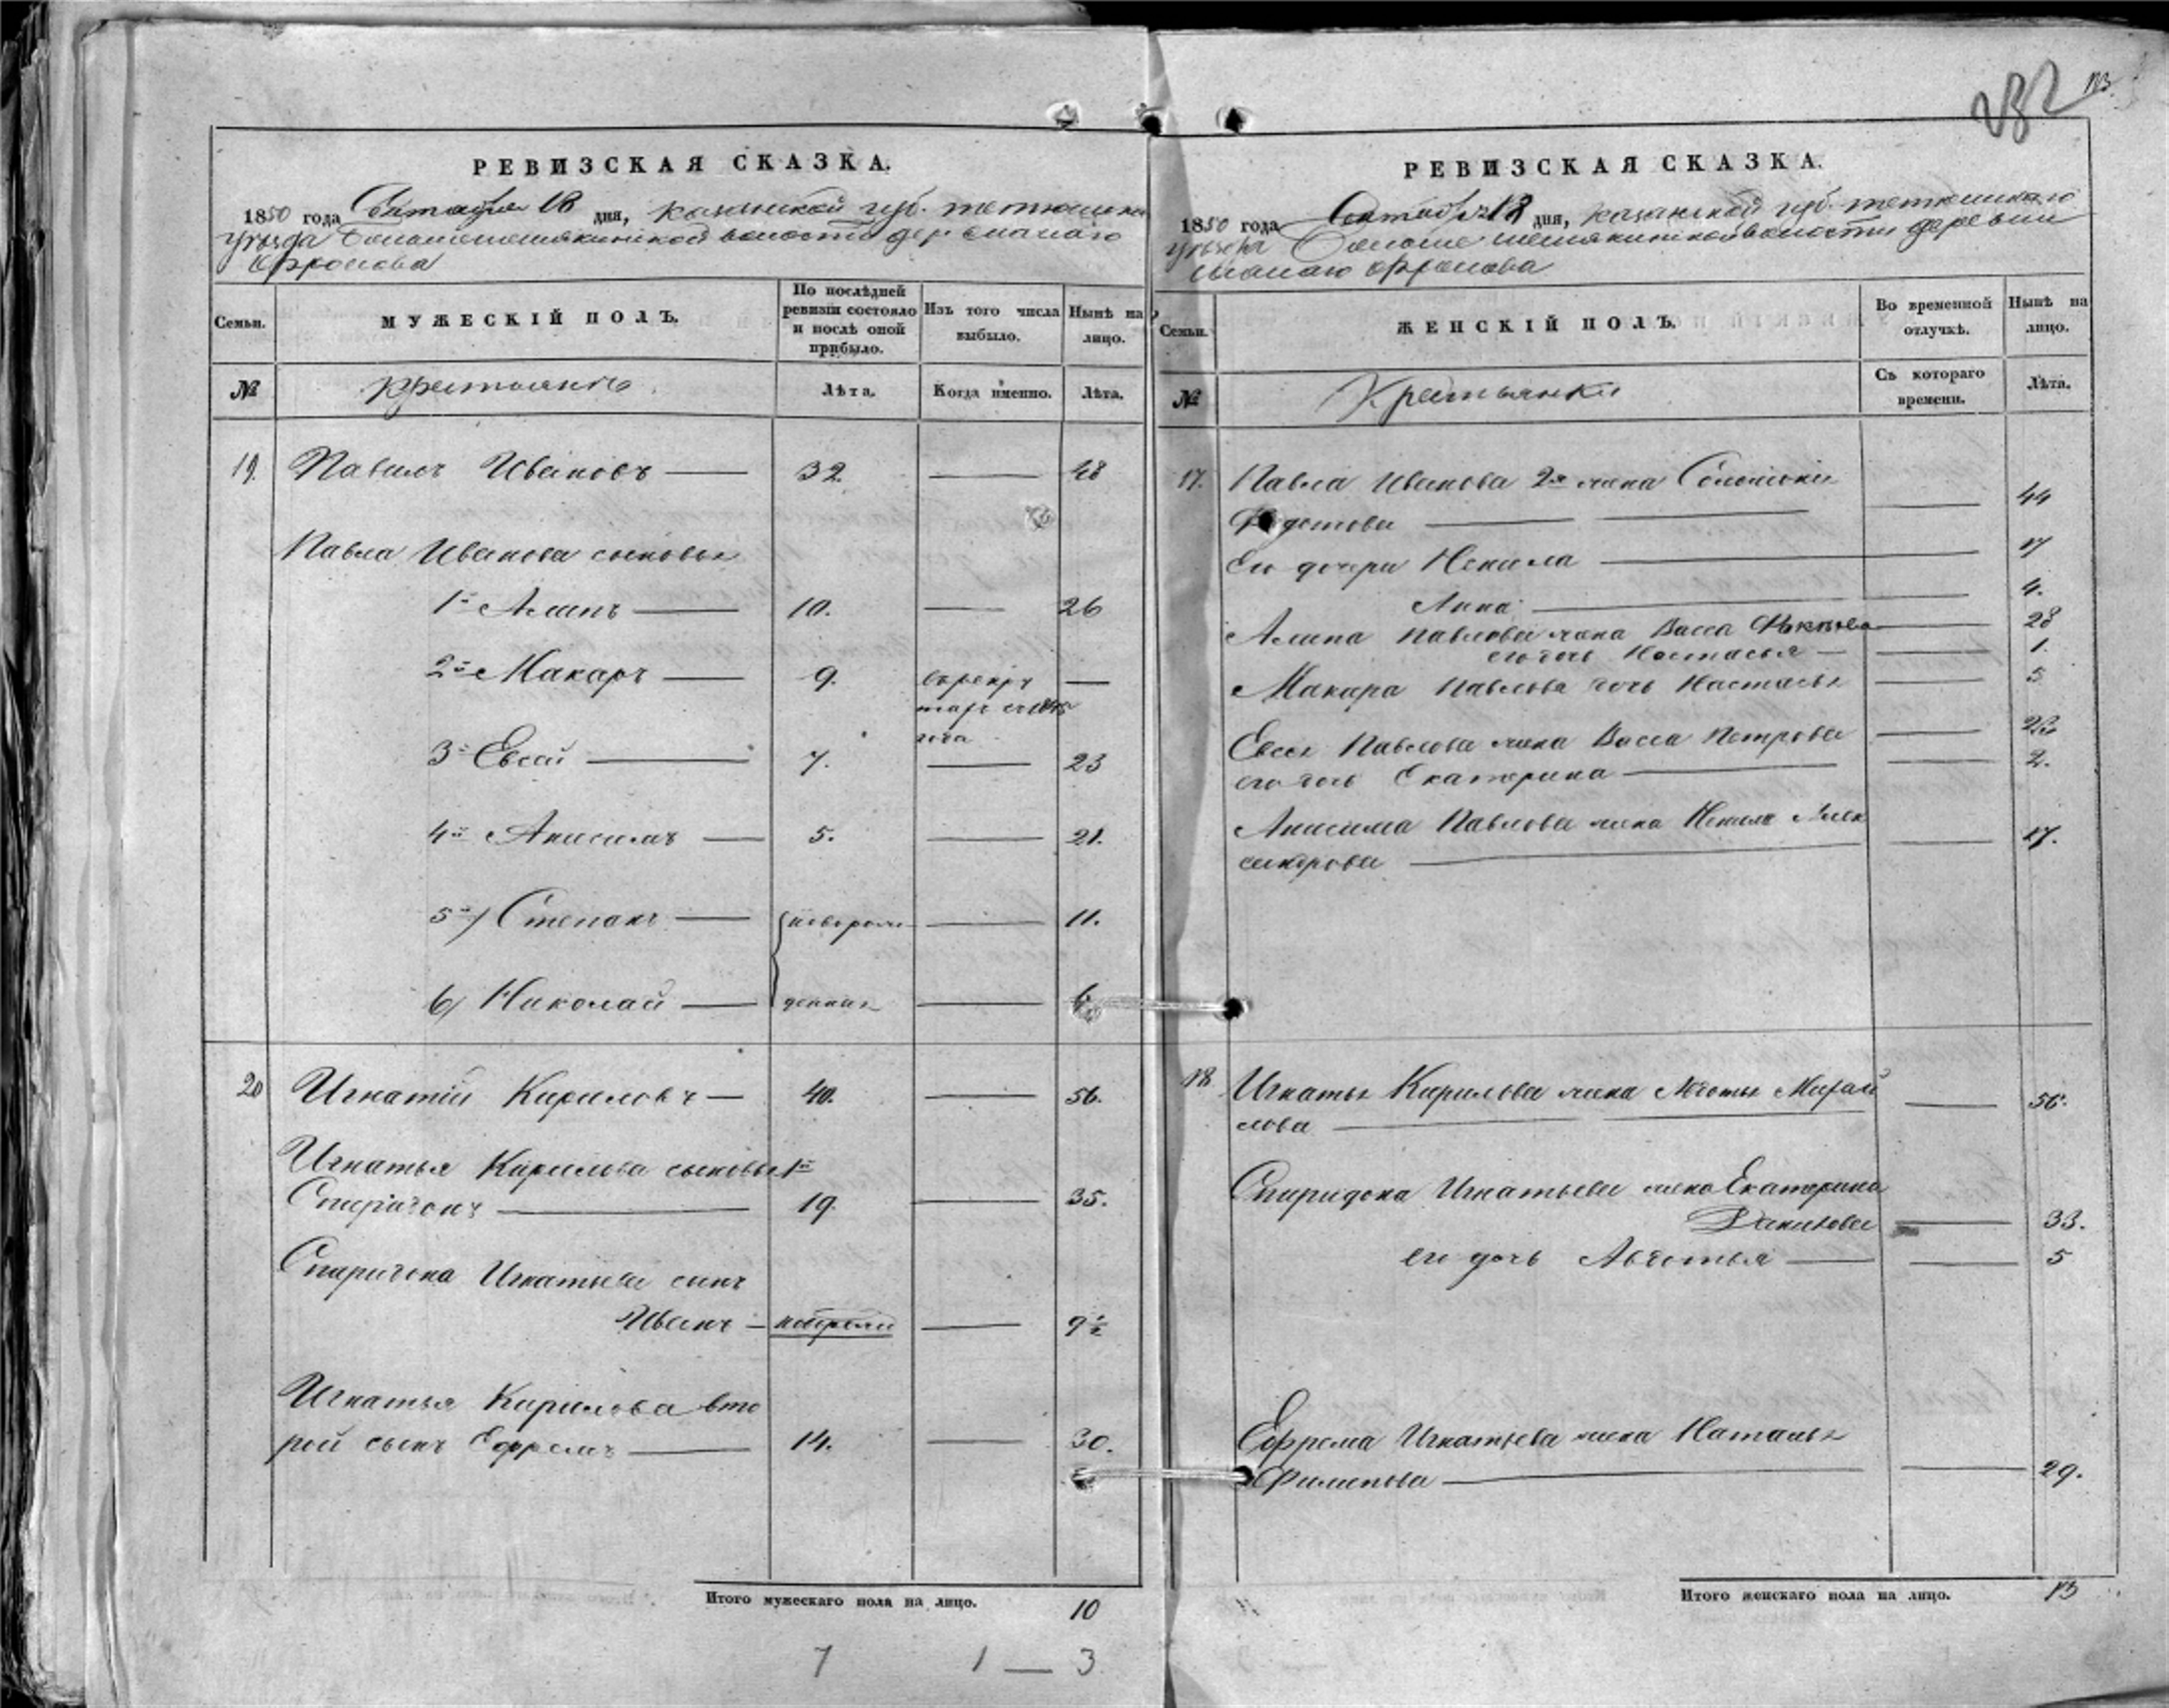 132
113.
РЕВИЗСКАЯ СКАЗКА.
1850 года Октября 18 дня, Казанской губ. тетюшска
уѣзда волости дер. Малаго
Фролова
Семьи.
МУЖЕСКІЙ ПОЛЪ.
По послѣдней ревизіи состояло и послѣ оной прибыло.
Изъ того числа выбыло.
Нынѣ на лицо.
№
Крестьяне
Лѣта.
Когда именно.
Лѣта.
19. Павелъ Ивановъ — 32. — 48
Павла Иванова сыновья
1й — 10. — 26
2й Макаръ — 9. въ рекр —
тахъ съ 1845
года
3й Евсей — 7. — 23
4й Анисимъ — 5. — 21.
5й) Степанъ — новорож — 11.
6) Николай — денныя — 6
20 Игнатій Кириловъ — 40. — 56.
Игнатья Кирилова сыновья 1й
Спиридонъ — 19. — 35.
Спиридона Игнатьева сынъ
Иванъ — новорож — 9½
Игнатья Кирилова вто
рой сынъ Ефремъ — 14. — 30.
Итого мужескаго пола на лицо. 10
7 1 — 3
РЕВИЗСКАЯ СКАЗКА.
1850 года Октября 18 дня, Казанской губ. тетюшскаго
уѣзда волости деревни
Малаго Фролова
Семьи.
ЖЕНСКІЙ ПОЛЪ.
Во временной отлучкѣ.
Нынѣ на лицо.
№
Крестьянки
Съ котораго времени.
Лѣта.
17. Павла Иванова 2я жена
Федотова — — 44
Его дочери Ненила — 17
Анна — 4.
Павлова жена Васса — 28
его дочь Настасья — — 1.
Макара Павлова дочь Настасья — 5
Евсея Павлова жена Васса Петрова —
его дочь Екатерина — — 2.
Анисима Павлова жена Ненила Алек
сандрова — — 17.
18 Игнатья Кирилова жена Михай
лова — — 56.
Спиридона Игнатьева жена Екатерина
Данилова — 33.
его дочь Авдотья — — 5
Ефрема Игнатьева жена Наталья
Филипова — — 29.
Итого женскаго пола на лицо. 13